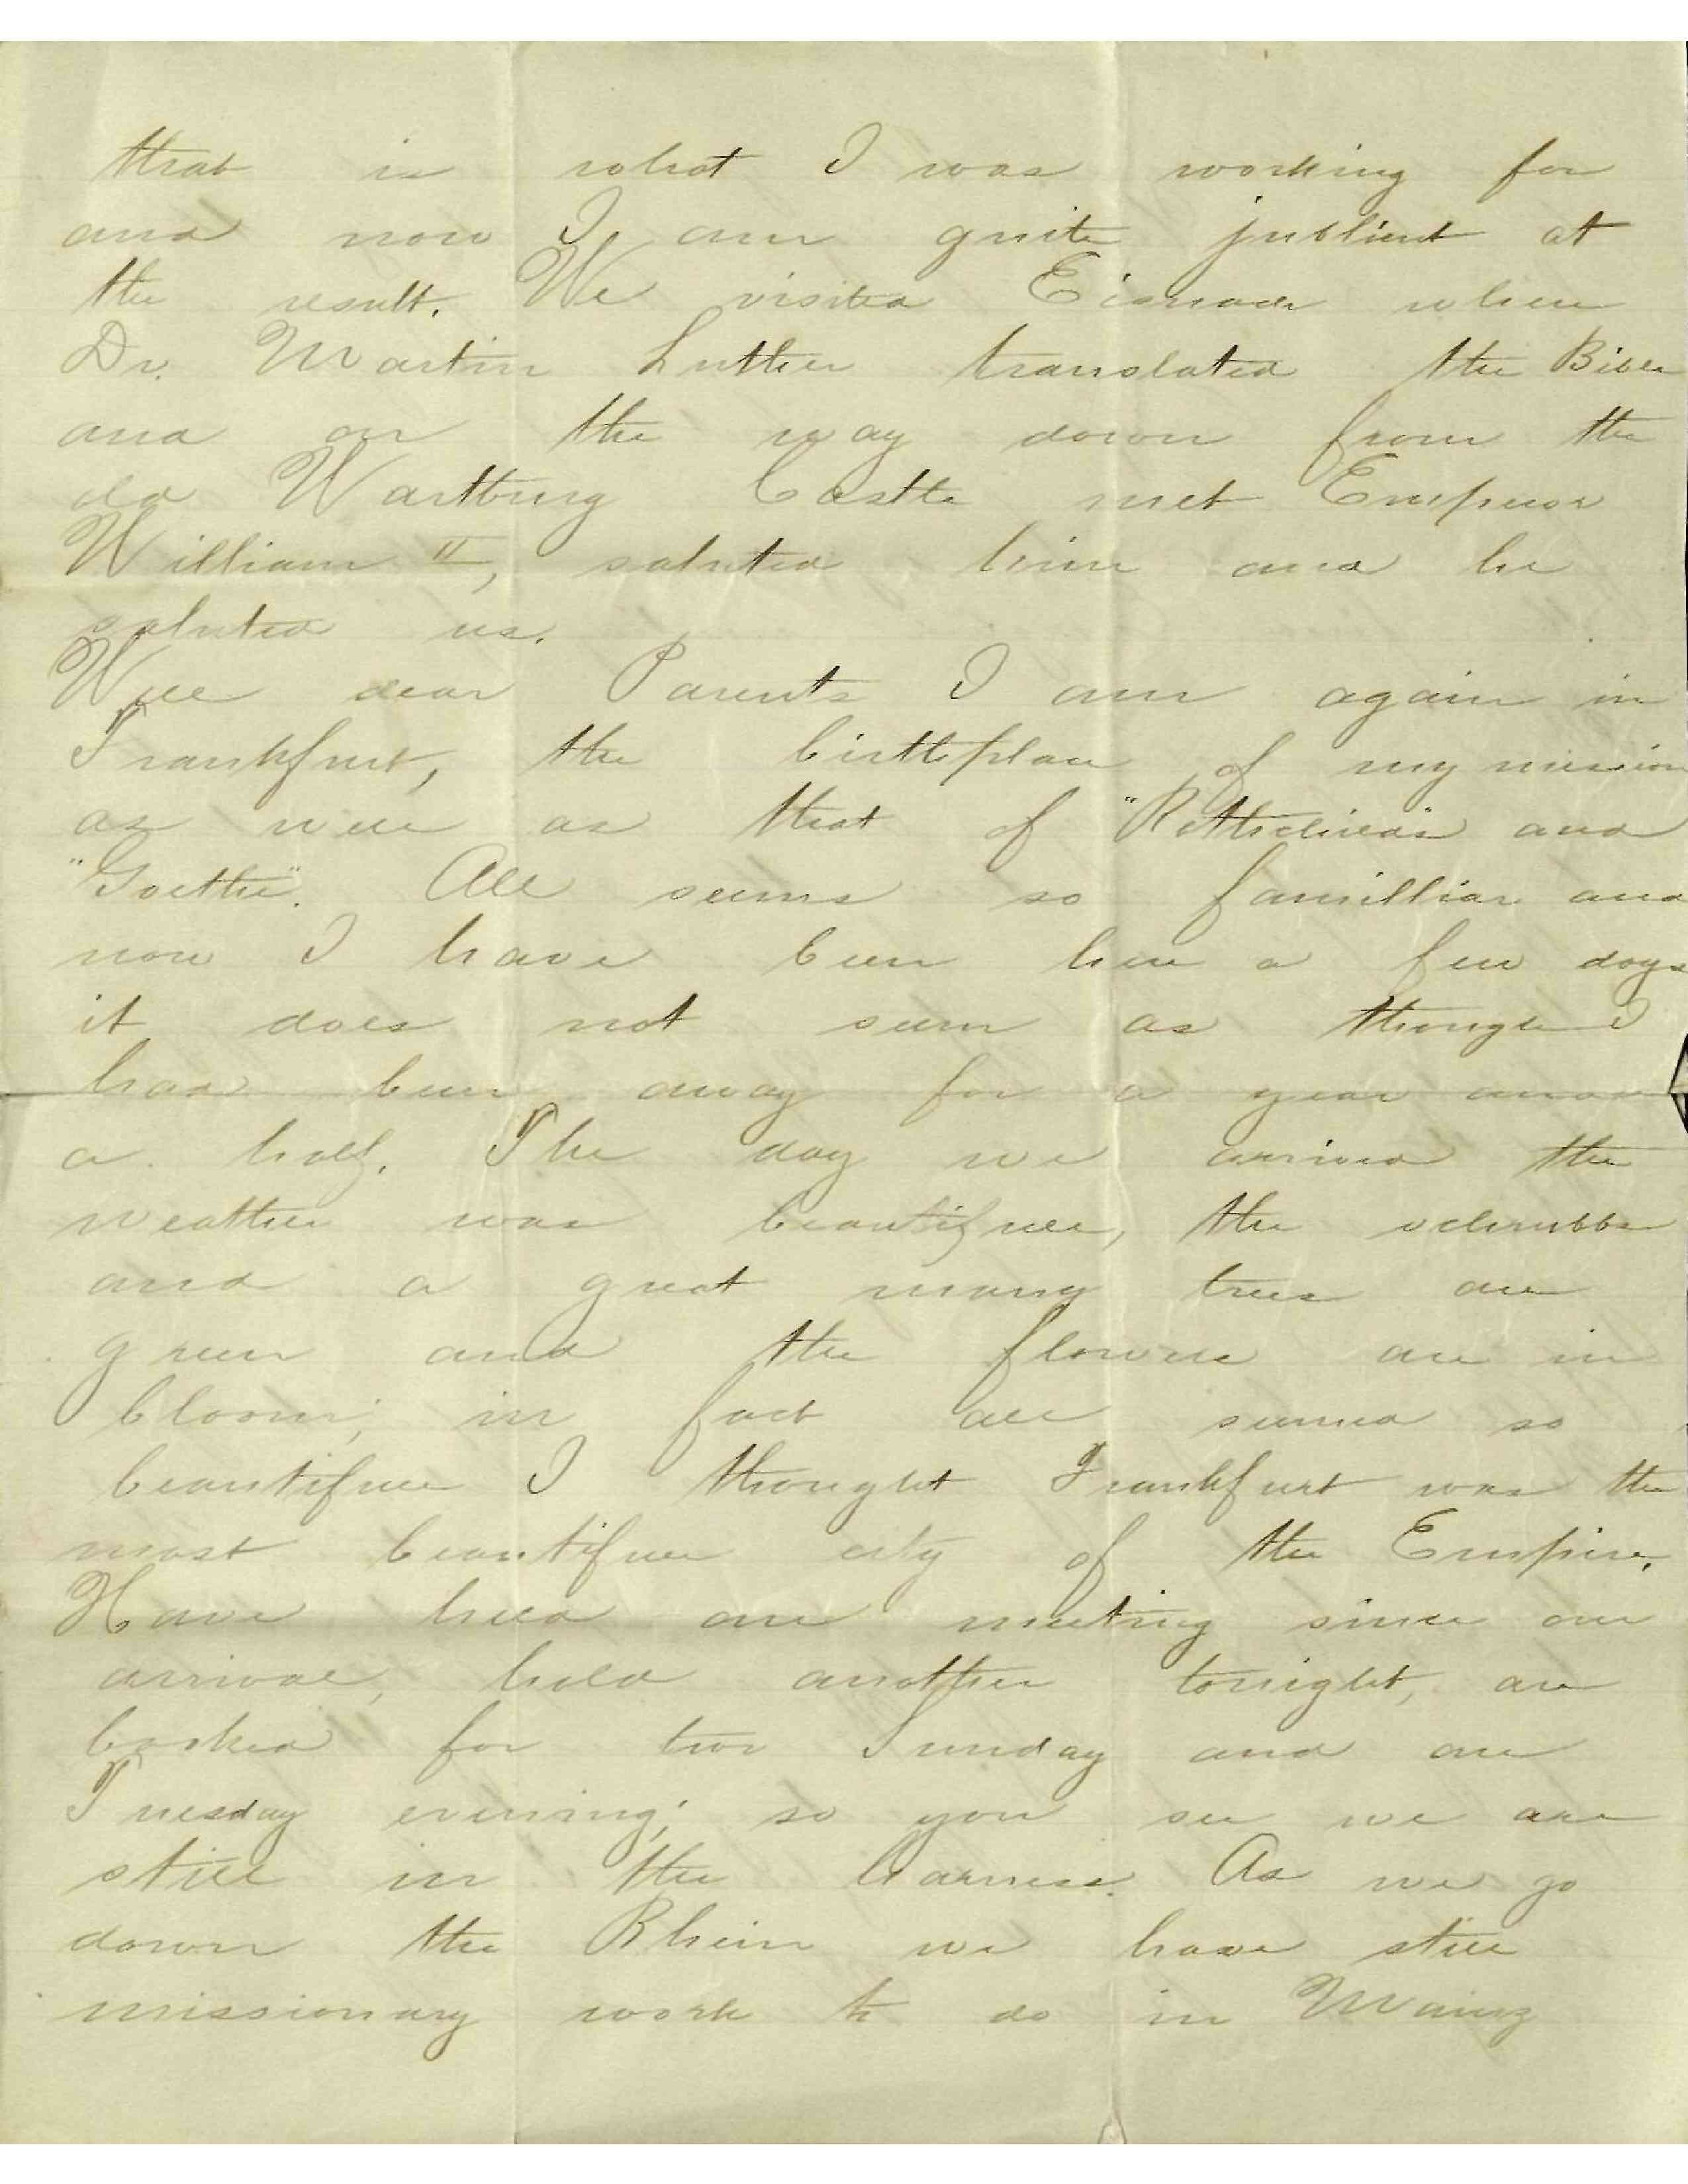 that is what I was working for
and now I am quite jublient at
the result. We visited Eisnach where
Dr. Martin Luther translated the Bible
and on the way down from the
old Wartburg Castle met Emperor
William II, saluted him and he
saluted us.
Well dear Parents I am again in
Frankfurt, the birthplace of my mission
as well as that of "Rothschilds" and
"Goethe". All seems so familliar and
now I have been here a few days
it does not seem as though I
had been away for a year and
a half. The day we arrived the
weather was beautifull, the schrubbs
and a great many trees are
green and the flowers are in
bloom; in fact all seemed so
beautifull I thought Frankfurt was the
most beautifull city of the Empire.
Have held one meeting since our
arrival, hold another tonight, are
booked for two Sunday and one
Tuesday evening; so you see we are
still in the harness. As we go
down the Rhein we have still
missionary work to do in Mainz